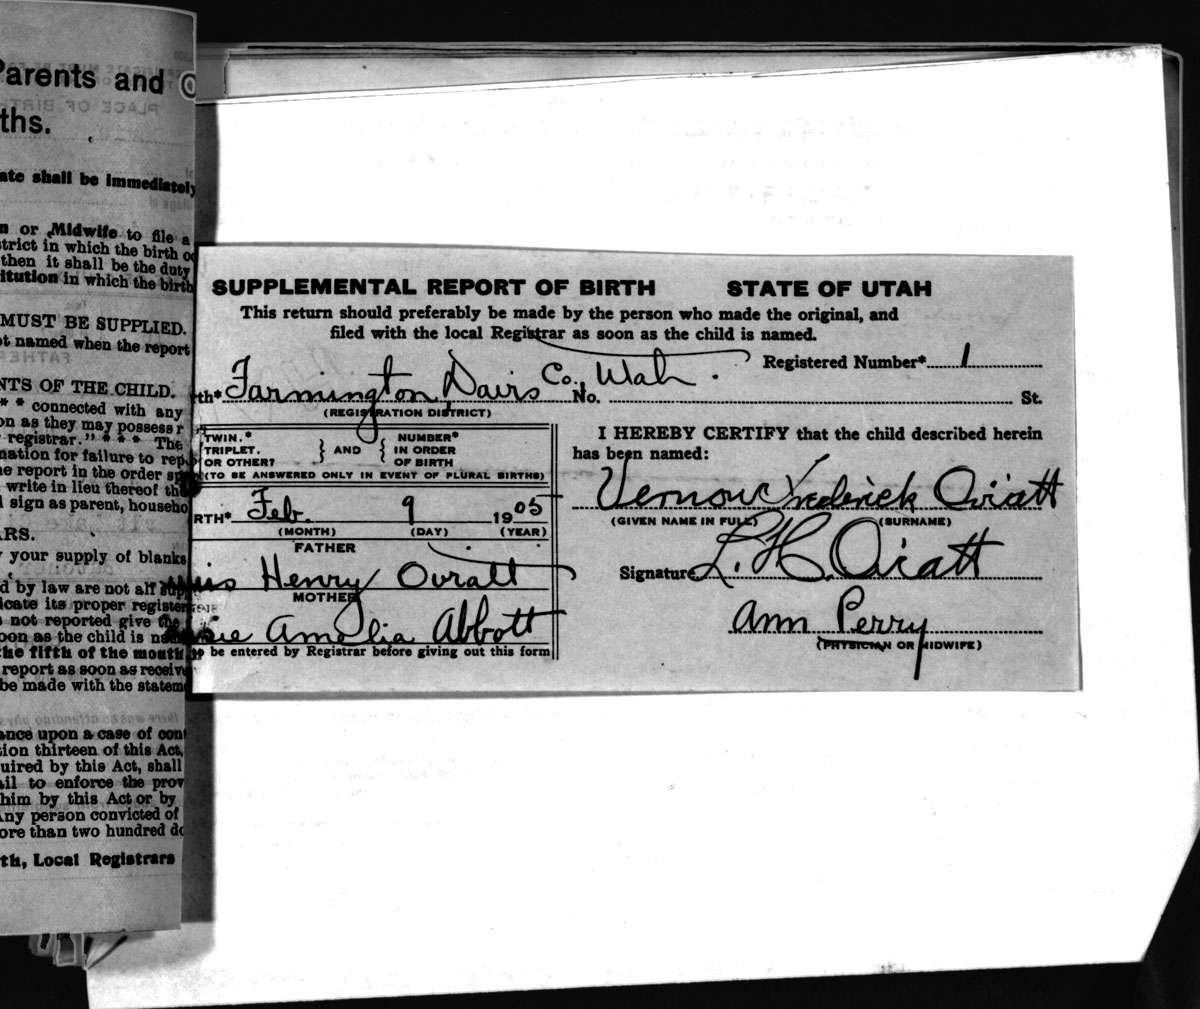 Parents and
ths.
ate shall be immediately
n or Midwife to file a
strict in which the birth
then it shall be the duty
itution in which the birth
MUST BE SUPPLIED.
ot named when the report
NTS OF THE CHILD.
* * connected with any
on as they may possess
registrar." * * * The
mation for failure to
he report in the order
write in lieu thereof
l sign as parent, househo
RS.
your supply of blanks
d by law are not all
icate its proper register
s not reported give the
oon as the child is
the fifth of the month
report as soon as receive
be made with the statem
ance upon a case of
tion thirteen of this Act,
uired by this Act, shall
ail to enforce the prov
him by this Act or by
Any person convicted of
ore than two hundred do
th, Local Registrars
SUPPLEMENTAL REPORT OF BIRTH STATE OF UTAH
This return should preferably be made by the person who made the original, and
filed with the local Registrar as soon as the child is named.
Registered Number* 1
th* Farmington Davis Co., Utah. No. St.
(REGISTRATION DISTRICT)
TWIN,* TRIPLET, OR OTHER? } AND { NUMBER* IN ORDER OF BIRTH
(TO BE ANSWERED ONLY IN EVENT OF PLURAL BIRTHS)
RTH* Feb. 9 1905
(MONTH) (DAY) (YEAR)
FATHER
Henry Oviatt
MOTHER
Amelia Abbott
be entered by Registrar before giving out this form
I HEREBY CERTIFY that the child described herein
has been named:
Vernow Frederick Oviatt
(GIVEN NAME IN FULL) (SURNAME)
Signature L. H. Oviatt
Ann Perry
(PHYSICIAN OR MIDWIFE)